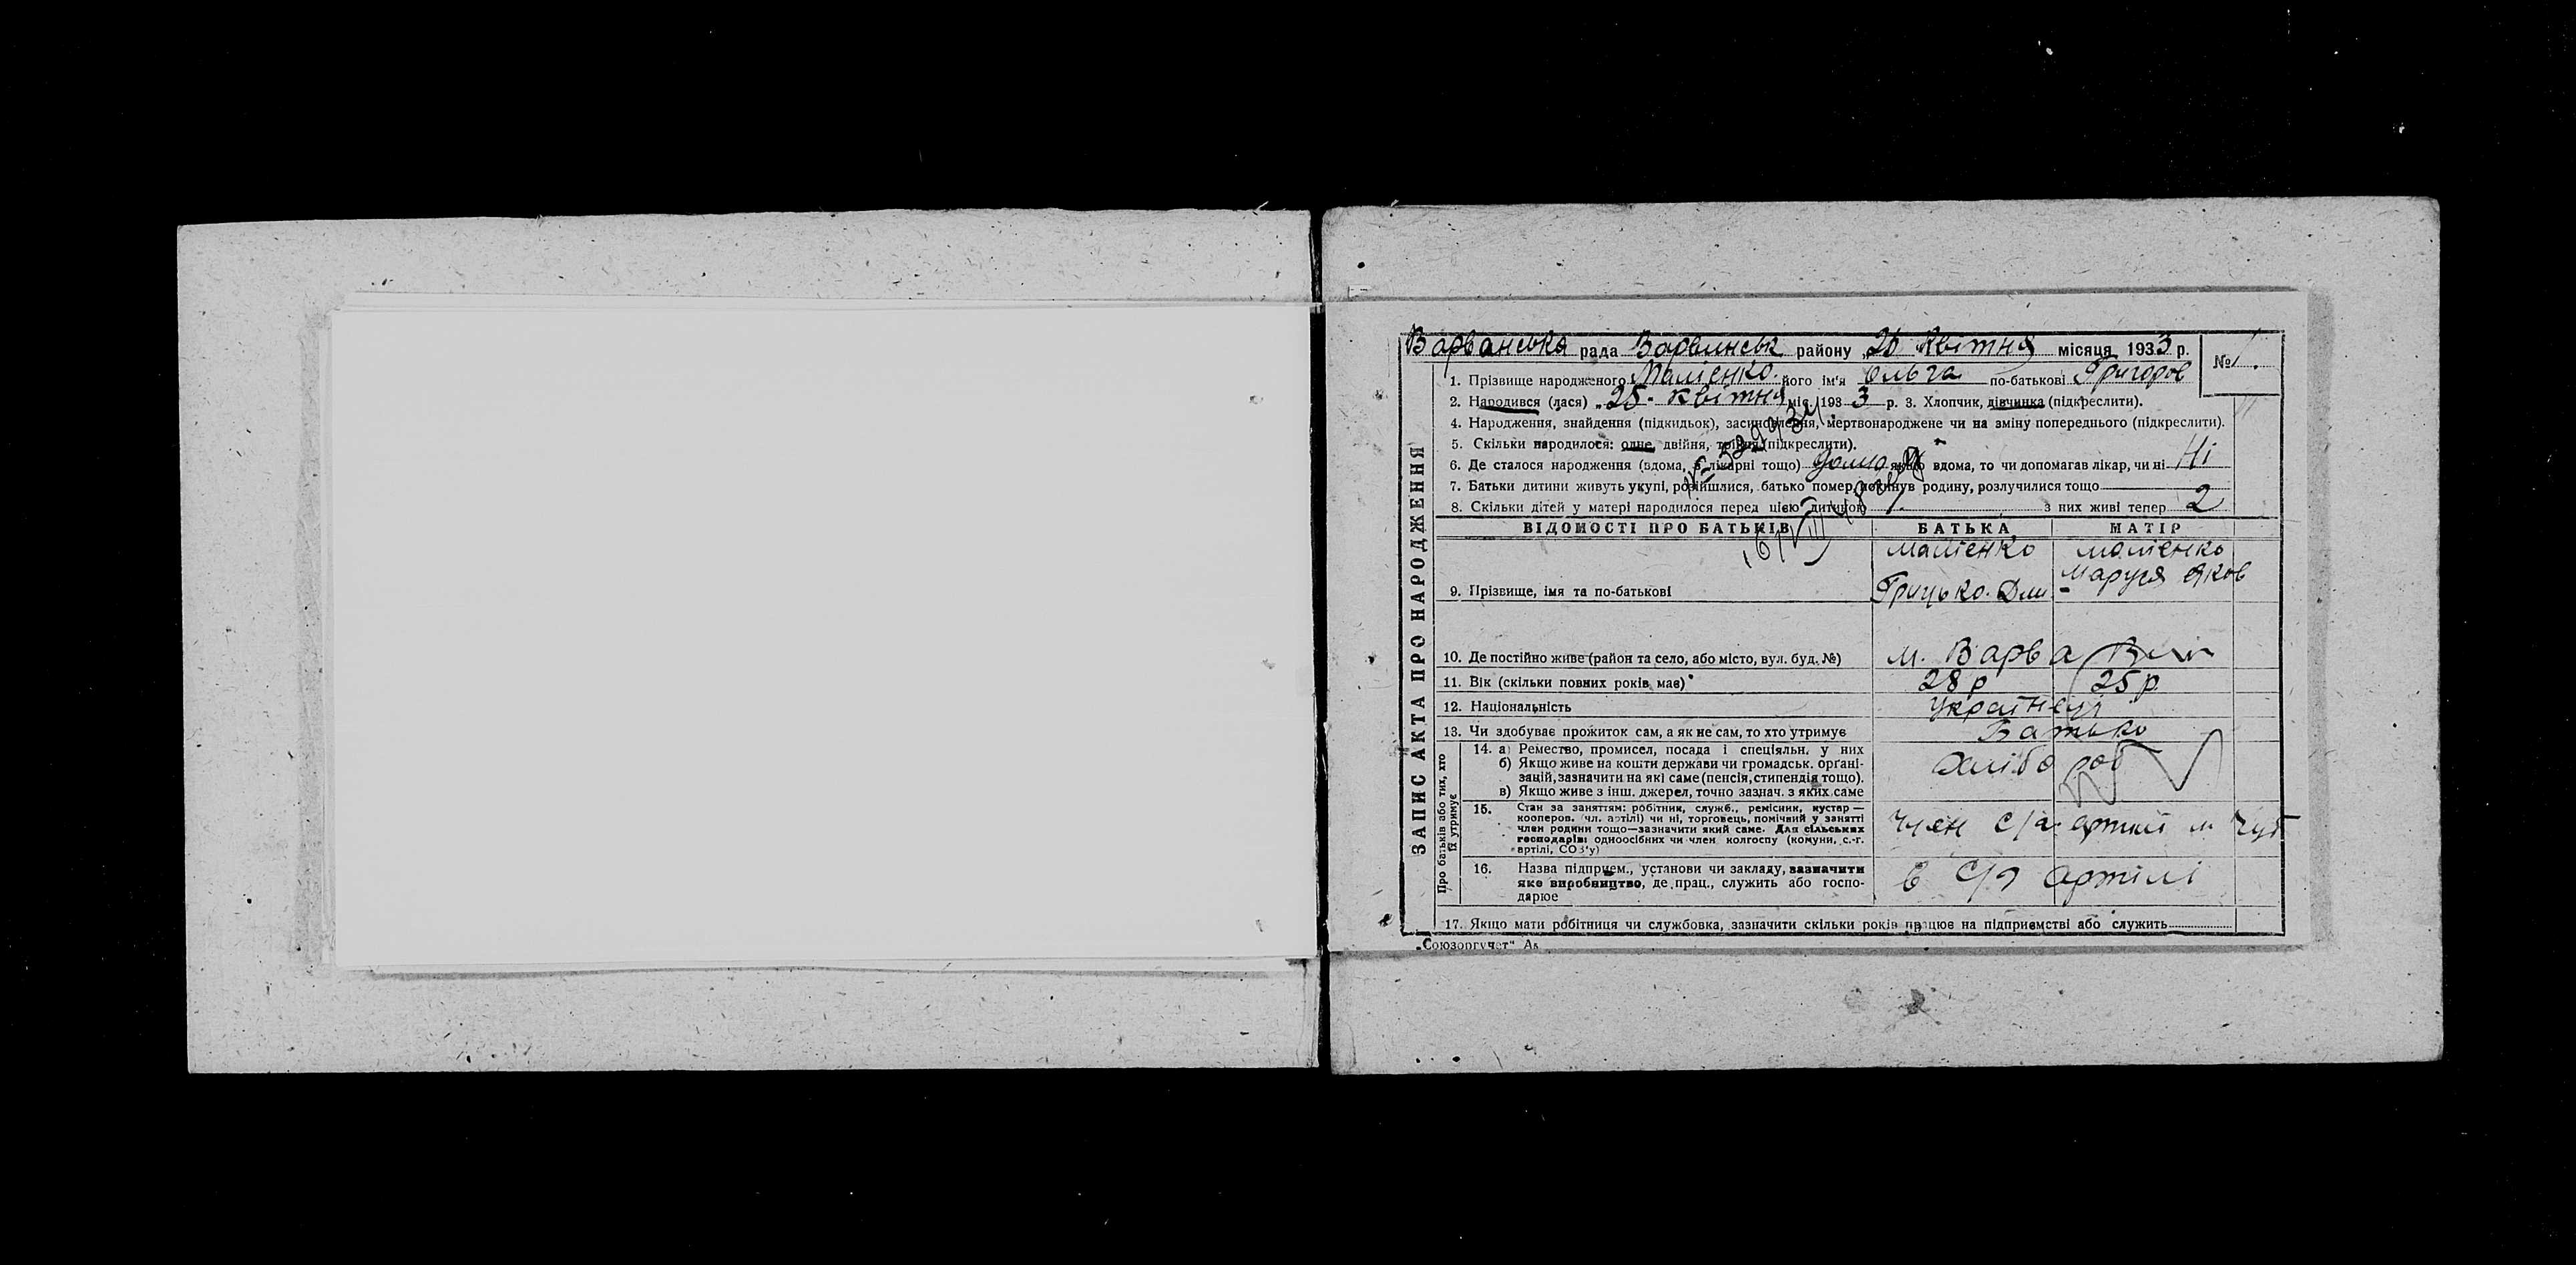 Варванська рада Варвинськ району „26 Квітня місяця 1933 р.
№ 1.
ЗАПИС АКТА ПРО НАРОДЖЕННЯ
1. Прізвище народженого Малієнко. його ім'я Ольга по-батькові Григоров
2. Народився (лася) „25" квітня міс. 1933 р. 3. Хлопчик, дівчинка (підкреслити).
4. Народження, знайдення (підкидьок), засиновлення, мертвонароджене чи на зміну попереднього (підкреслити).
5. Скільки народилося: одне, двійня, трійня (підкреслити).
6. Де сталося народження (вдома, в лікарні тощо) дома якщо вдома, то чи допомагав лікар, чи ні Ні
7. Батьки дитини живуть укупі, розійшлися, батько помер, покинув родину, розлучилися тощо
8. Скільки дітей у матері народилося перед цією дитиною 1 з них живі тепер 2
ВІДОМОСТІ ПРО БАТЬКІВ БАТЬКА МАТІР
Малієнко Малієнко
9. Прізвище, імя та по-батькові Грицько. Дми Маруся Яков
10. Де постійно живе (район та село, або місто, вул. буд. №) м. Варва
11. Вік (скільки повних років має) 28 р 25 р.
12. Національність Українці
13. Чи здобуває прожиток сам, а як не сам, то хто утримує Батько
Про батьків або тих, хто їх утримує
14. а) Ремество, промисел, посада і спеціяльн. у них Хлібороб
б) Якщо живе на кошти держави чи громадськ. орґані-
зацій, зазначити на які саме (пенсія, стипендія тощо).
в) Якщо живе з інш. джерел, точно зазнач. з яких саме
15. Стан за заняттям: робітник, служб., ремісник, кустар —
кооперов. (чл. артілі) чи ні, торговець, помічний у занятті
член родини тощо—зазначити який саме. Для сільських
господарів: одноосібних чи член колгоспу (комуни, с.-г.
артілі, СОЗ'у)
член с/г артілі
16. Назва підприєм., установи чи закладу, зазначити
яке виробництво, де прац., служить або госпо-
дарює
в с/г артілі
17. Якщо мати робітниця чи службовка, зазначити скільки років працює на підприємстві або служить
„Союзоргучет" Ак